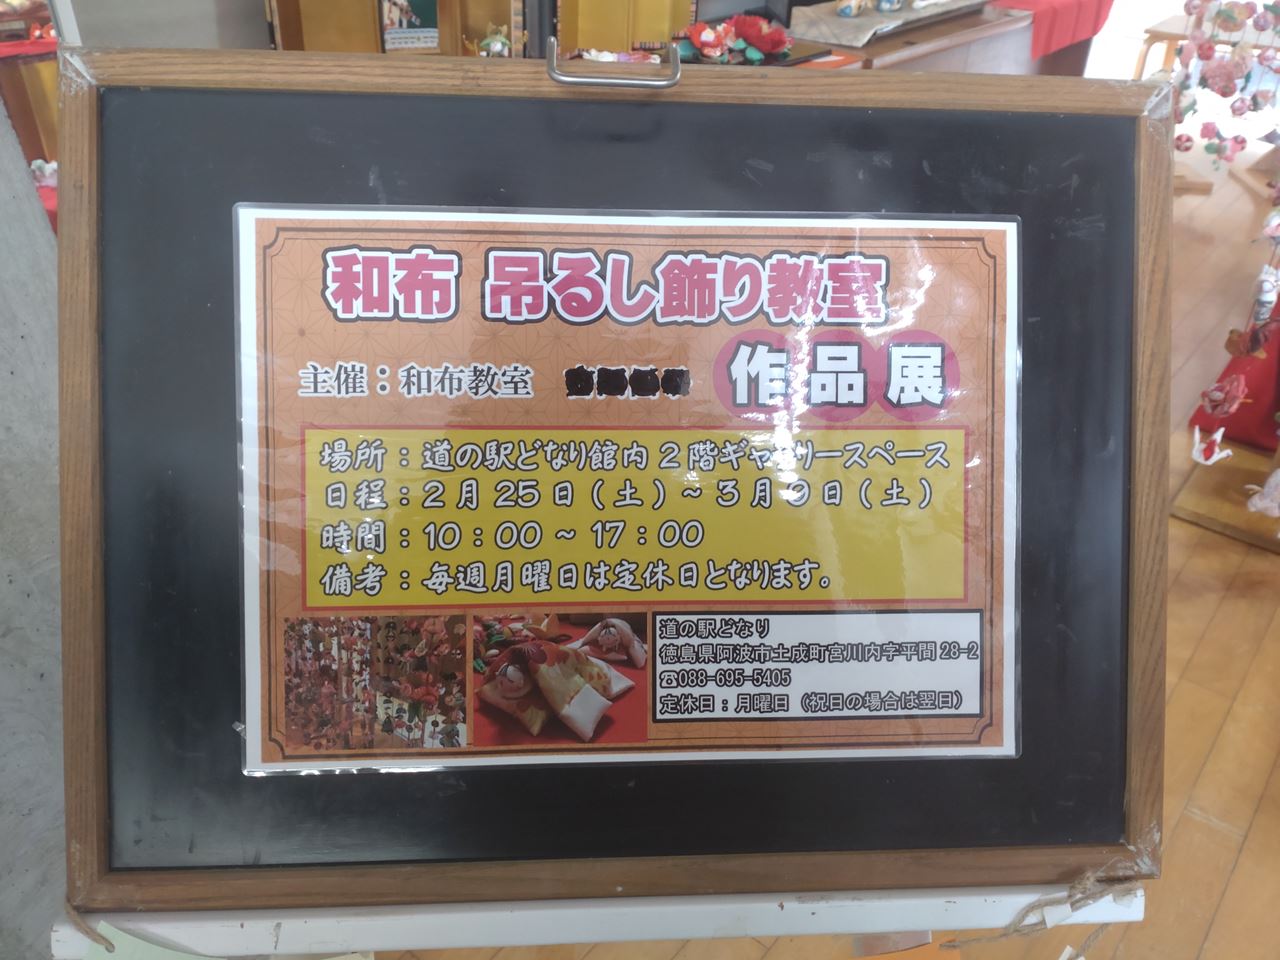 和布 吊るし飾り教室
作品展
主催：和布教室
場所：道の駅どなり館内2階ギャラリースペース
日程：2月25日(土)~3月9日(土)
時間：10：00~17：00
備考：毎週月曜日は定休日となります。
道の駅どなり
徳島県阿波市土成町宮川内字平間28-2
☎088-695-5405
定休日：月曜日（祝日の場合は翌日）